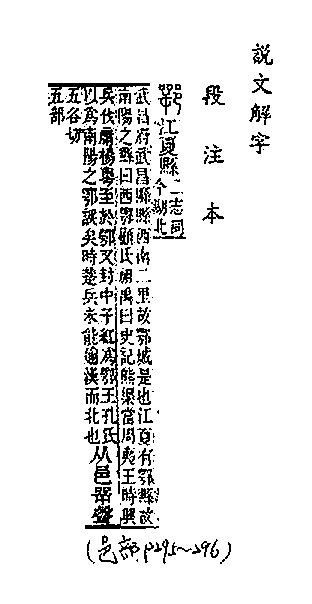 說文解字
段注本
鄂江夏縣二志同今湖北
武昌府武昌縣縣西南二里故鄂城是也江夏有鄂縣故
南陽之縣曰西鄂顧氏祖禹曰史記熊渠當周夷王時興
兵伐庸楊粵至於鄂又封中子紅爲鄂王孔氏
以爲南陽之鄂誤矣時楚兵未能逾漢而北也从邑㖾聲
五各切
五部
(邑部 p295~296)